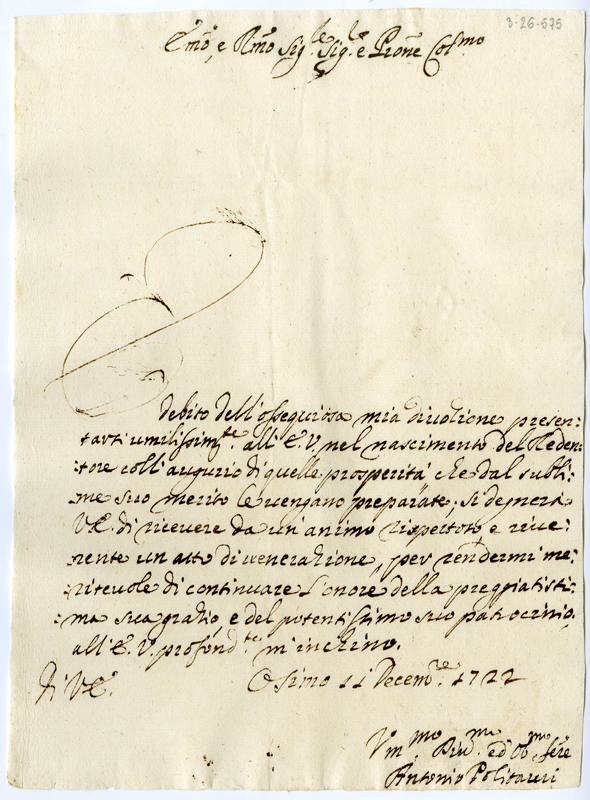 3-26-675
Emo, e Rmo Sig.re Sig.re e Prone Colmo
È debito dell'ossequiosa mia diuotione presen:
tarsi umilissimte. all'E.V. nel nascimento del Reden:
:tore coll'augurio di quelle prosperità che dal subli:
:me suo merito le uengano preparate; si degnerà
V.E. di riceuere da un'animo rispettoso e riue:
:rente un atto di uenerazione, per rendermi me:
:riteuole di continuare l'onore della preggiatissi:
:ma sua grazia, e del potentissimo suo patrocinio,
all'E.V. profondte. m'inchino.
Di V.E. Osimo 11 Decemre. 1722
Vmmo Diumo ed Obmo Sere
Antonio